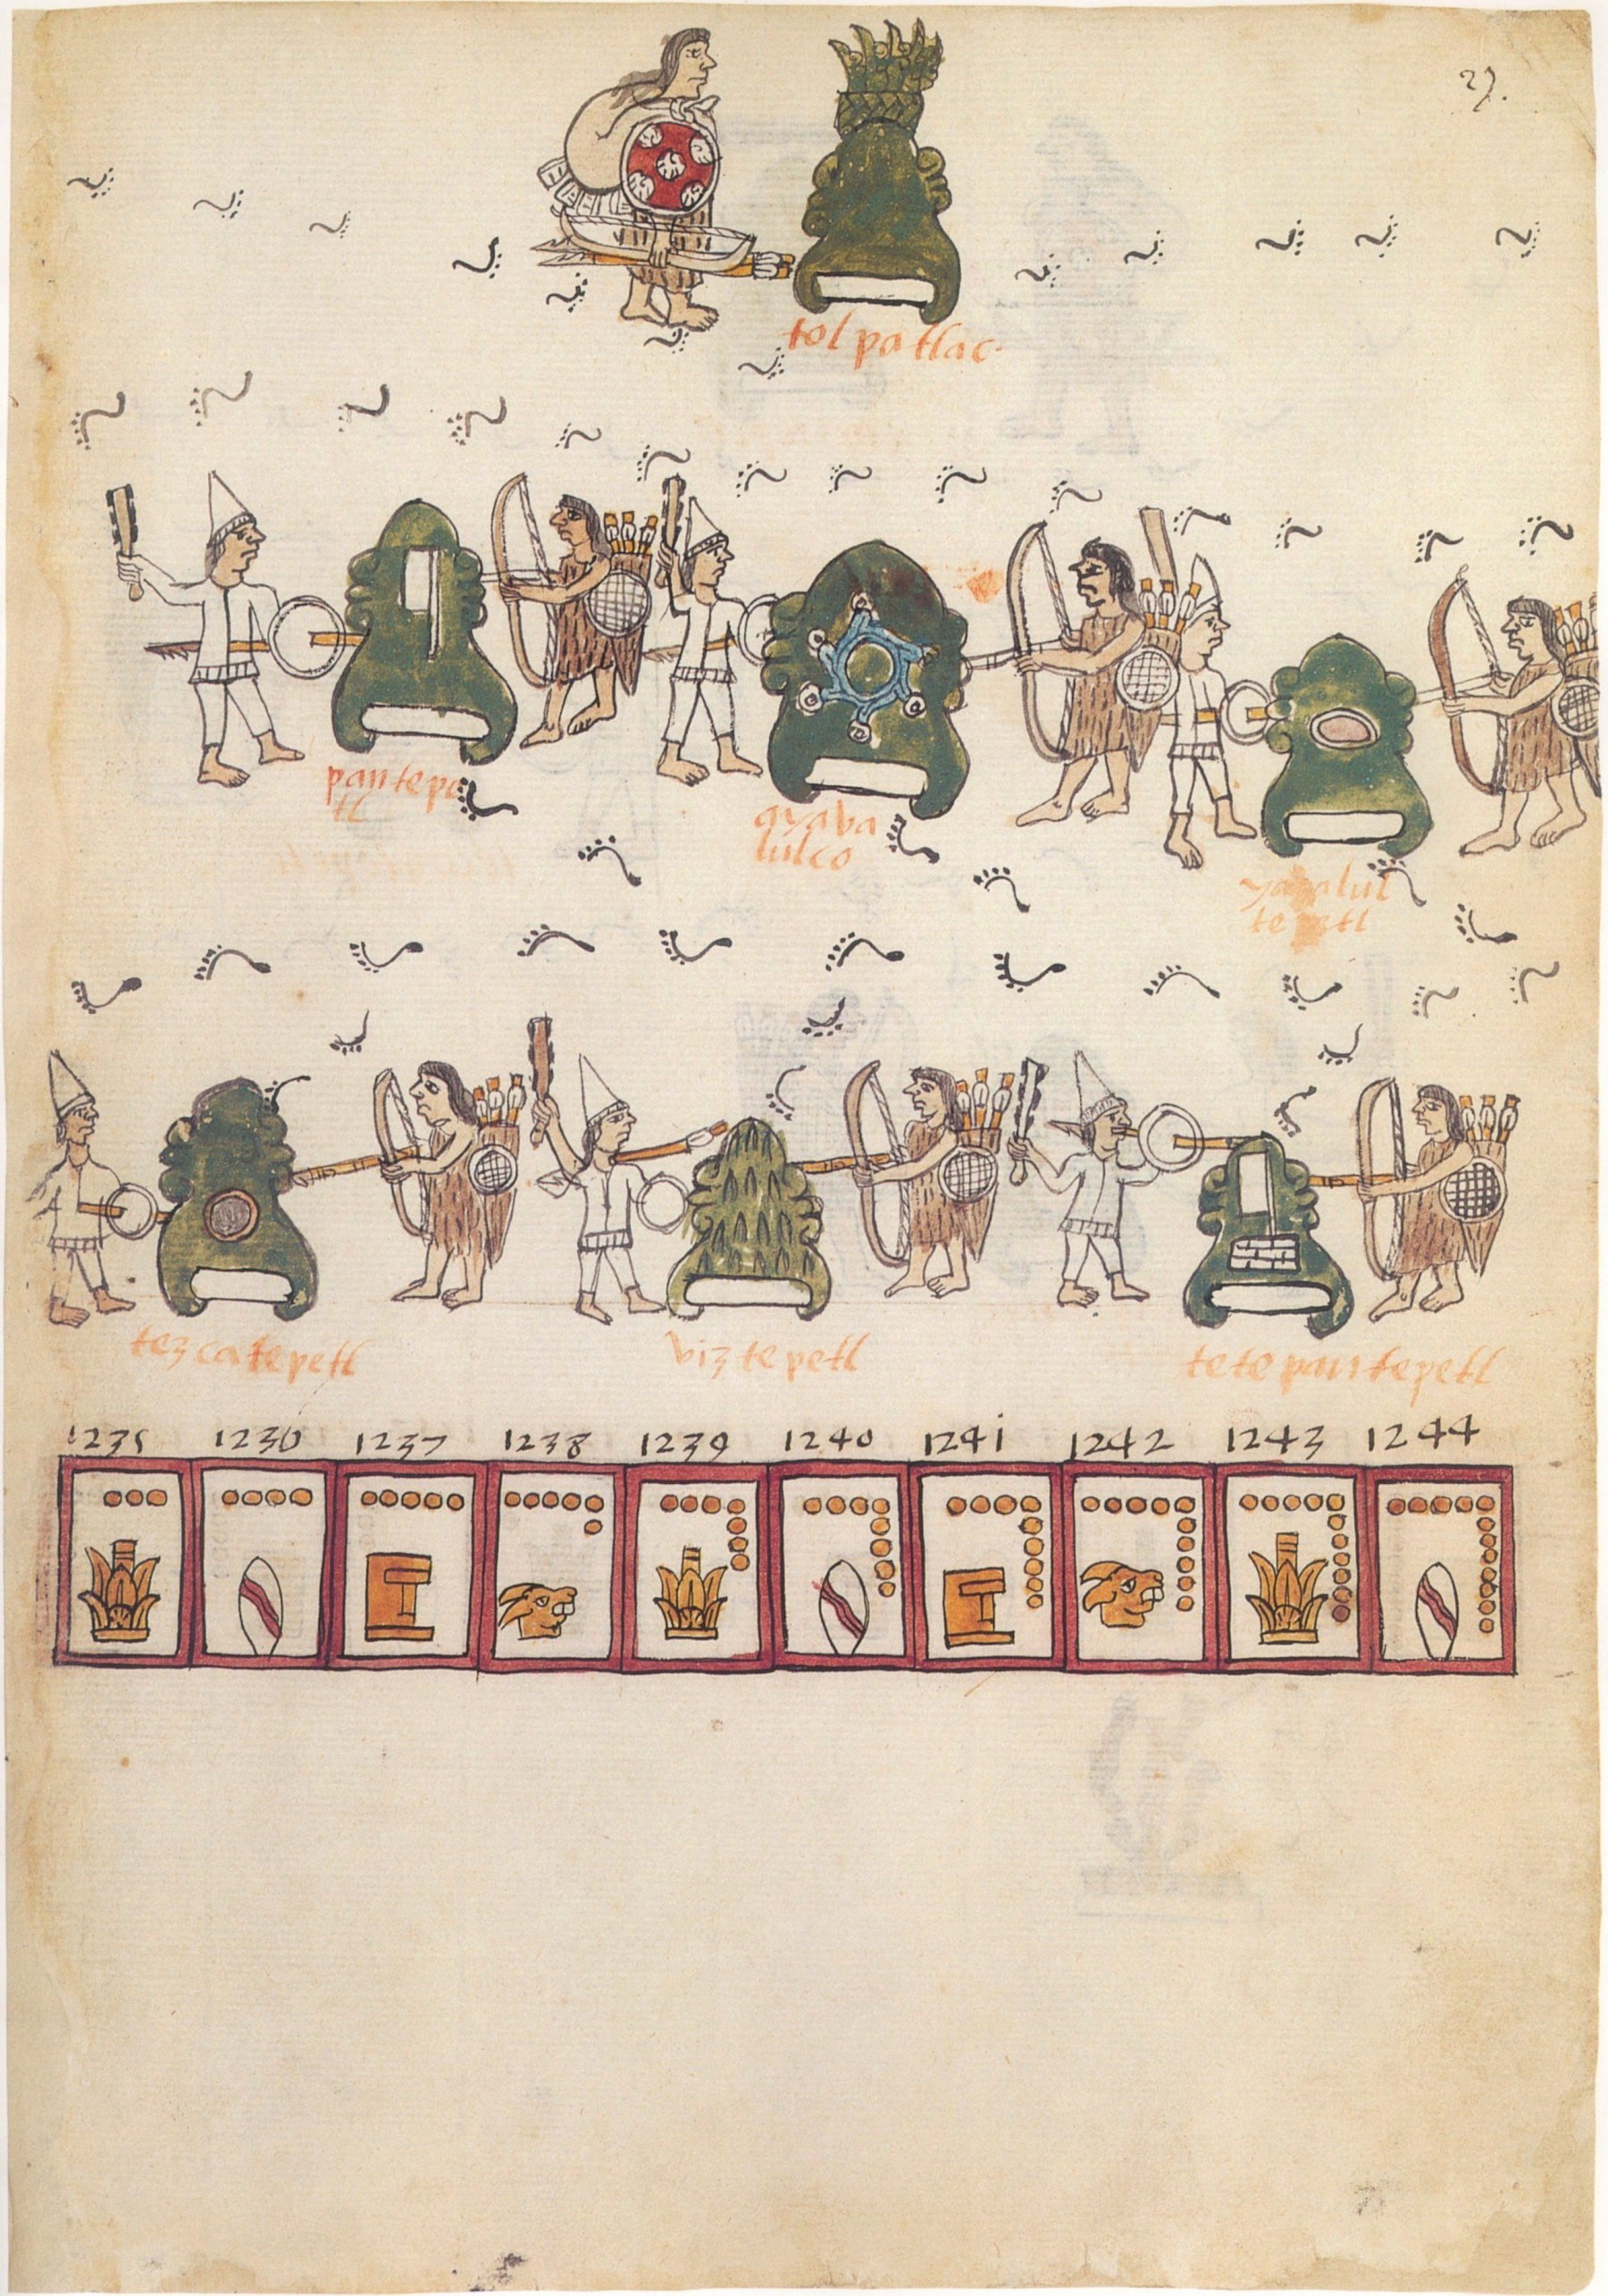 27.
tolpatlac
pantepe
tl
ayaba
lulco
yabalul
tepetl
tezcatepetl
biztepetl
tetepantepetl
1235 1236 1237 1238 1239 1240 1241 1242 1243 1244